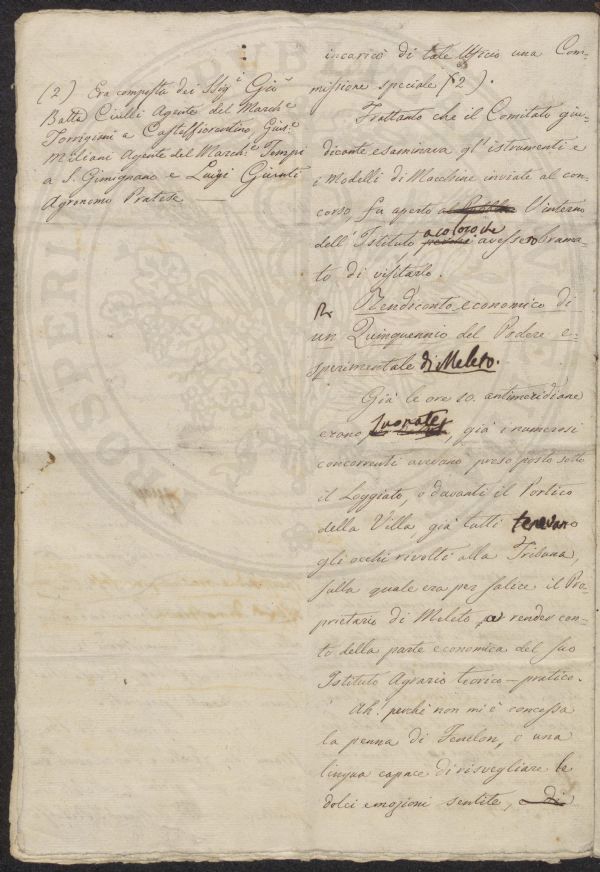 (2) Era composta dei SSigri Giũ
Batta Civilli Agente del Marche
Torrigiani a Castelfiorentino, Giuse
Miliani Agente del Marche Tempi
a S. Gimignano e Luigi Guanti
Agronomo Pratese —
incaricò di tale Uficio una Com-
missione speciale (2).
Trattanto che il Comitato giu-
dicante esaminava gl'istrumenti e
i Modelli di Macchine inviate al con-
corso, fu aperto l'interno
dell'Istituto a coloro che avessero brama-
to di visitarlo.
Rendiconto economico di
un Quinquennio del Podere e-
sperimentale di Meleto.
Già le ore 10. antimeridiane
erano suonate, già i numerosi
concorrenti avevano preso posto sotto
il Loggiato, o davanti il Portico
della Villa, già tutti tenevano
gli occhi rivolti alla Tribuna,
sulla quale era per salire il Pro-
prietario di Meleto a render con-
to della parte economica del suo
Istituto Agrario teorico-pratico.
Ah! perchè non mi è concessa
la penna di Fenelon, o una
lingua capace di risvegliare le
dolci emozioni sentite, di